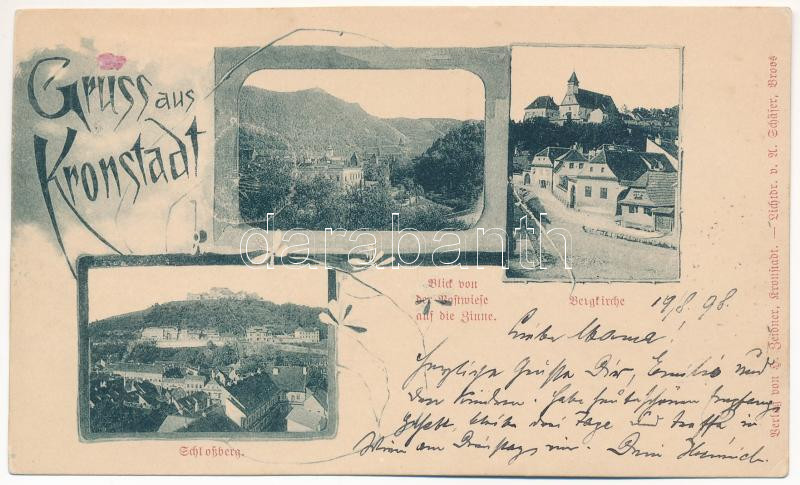 Gruss aus
Kronstadt
darabanth
Blick von
der Postwiese
auf die Zinne.
Bergkirche
Schloßberg.
19/8. 98.
Liebe Mama!
Herzliche Grüße Dir, Emilie und
den Kindern. habe
bleibe drei Tage und treffe in
Wien am Dienstag ein. Dein Heinrich.
Verlag von H. Zeidner, Kronstadt. — Lichtdr. v. A. Schäfer, Broos